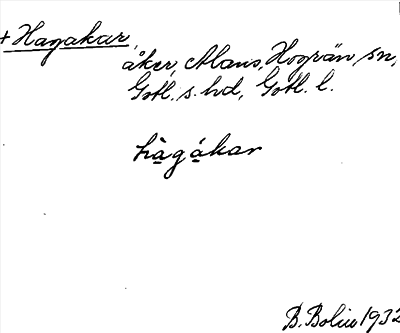 + Hagakar,
åker, Alans, Hogrän sn,
Gotl. s. hd, Gotl. l.
hàgákar
B. Bolin 1932